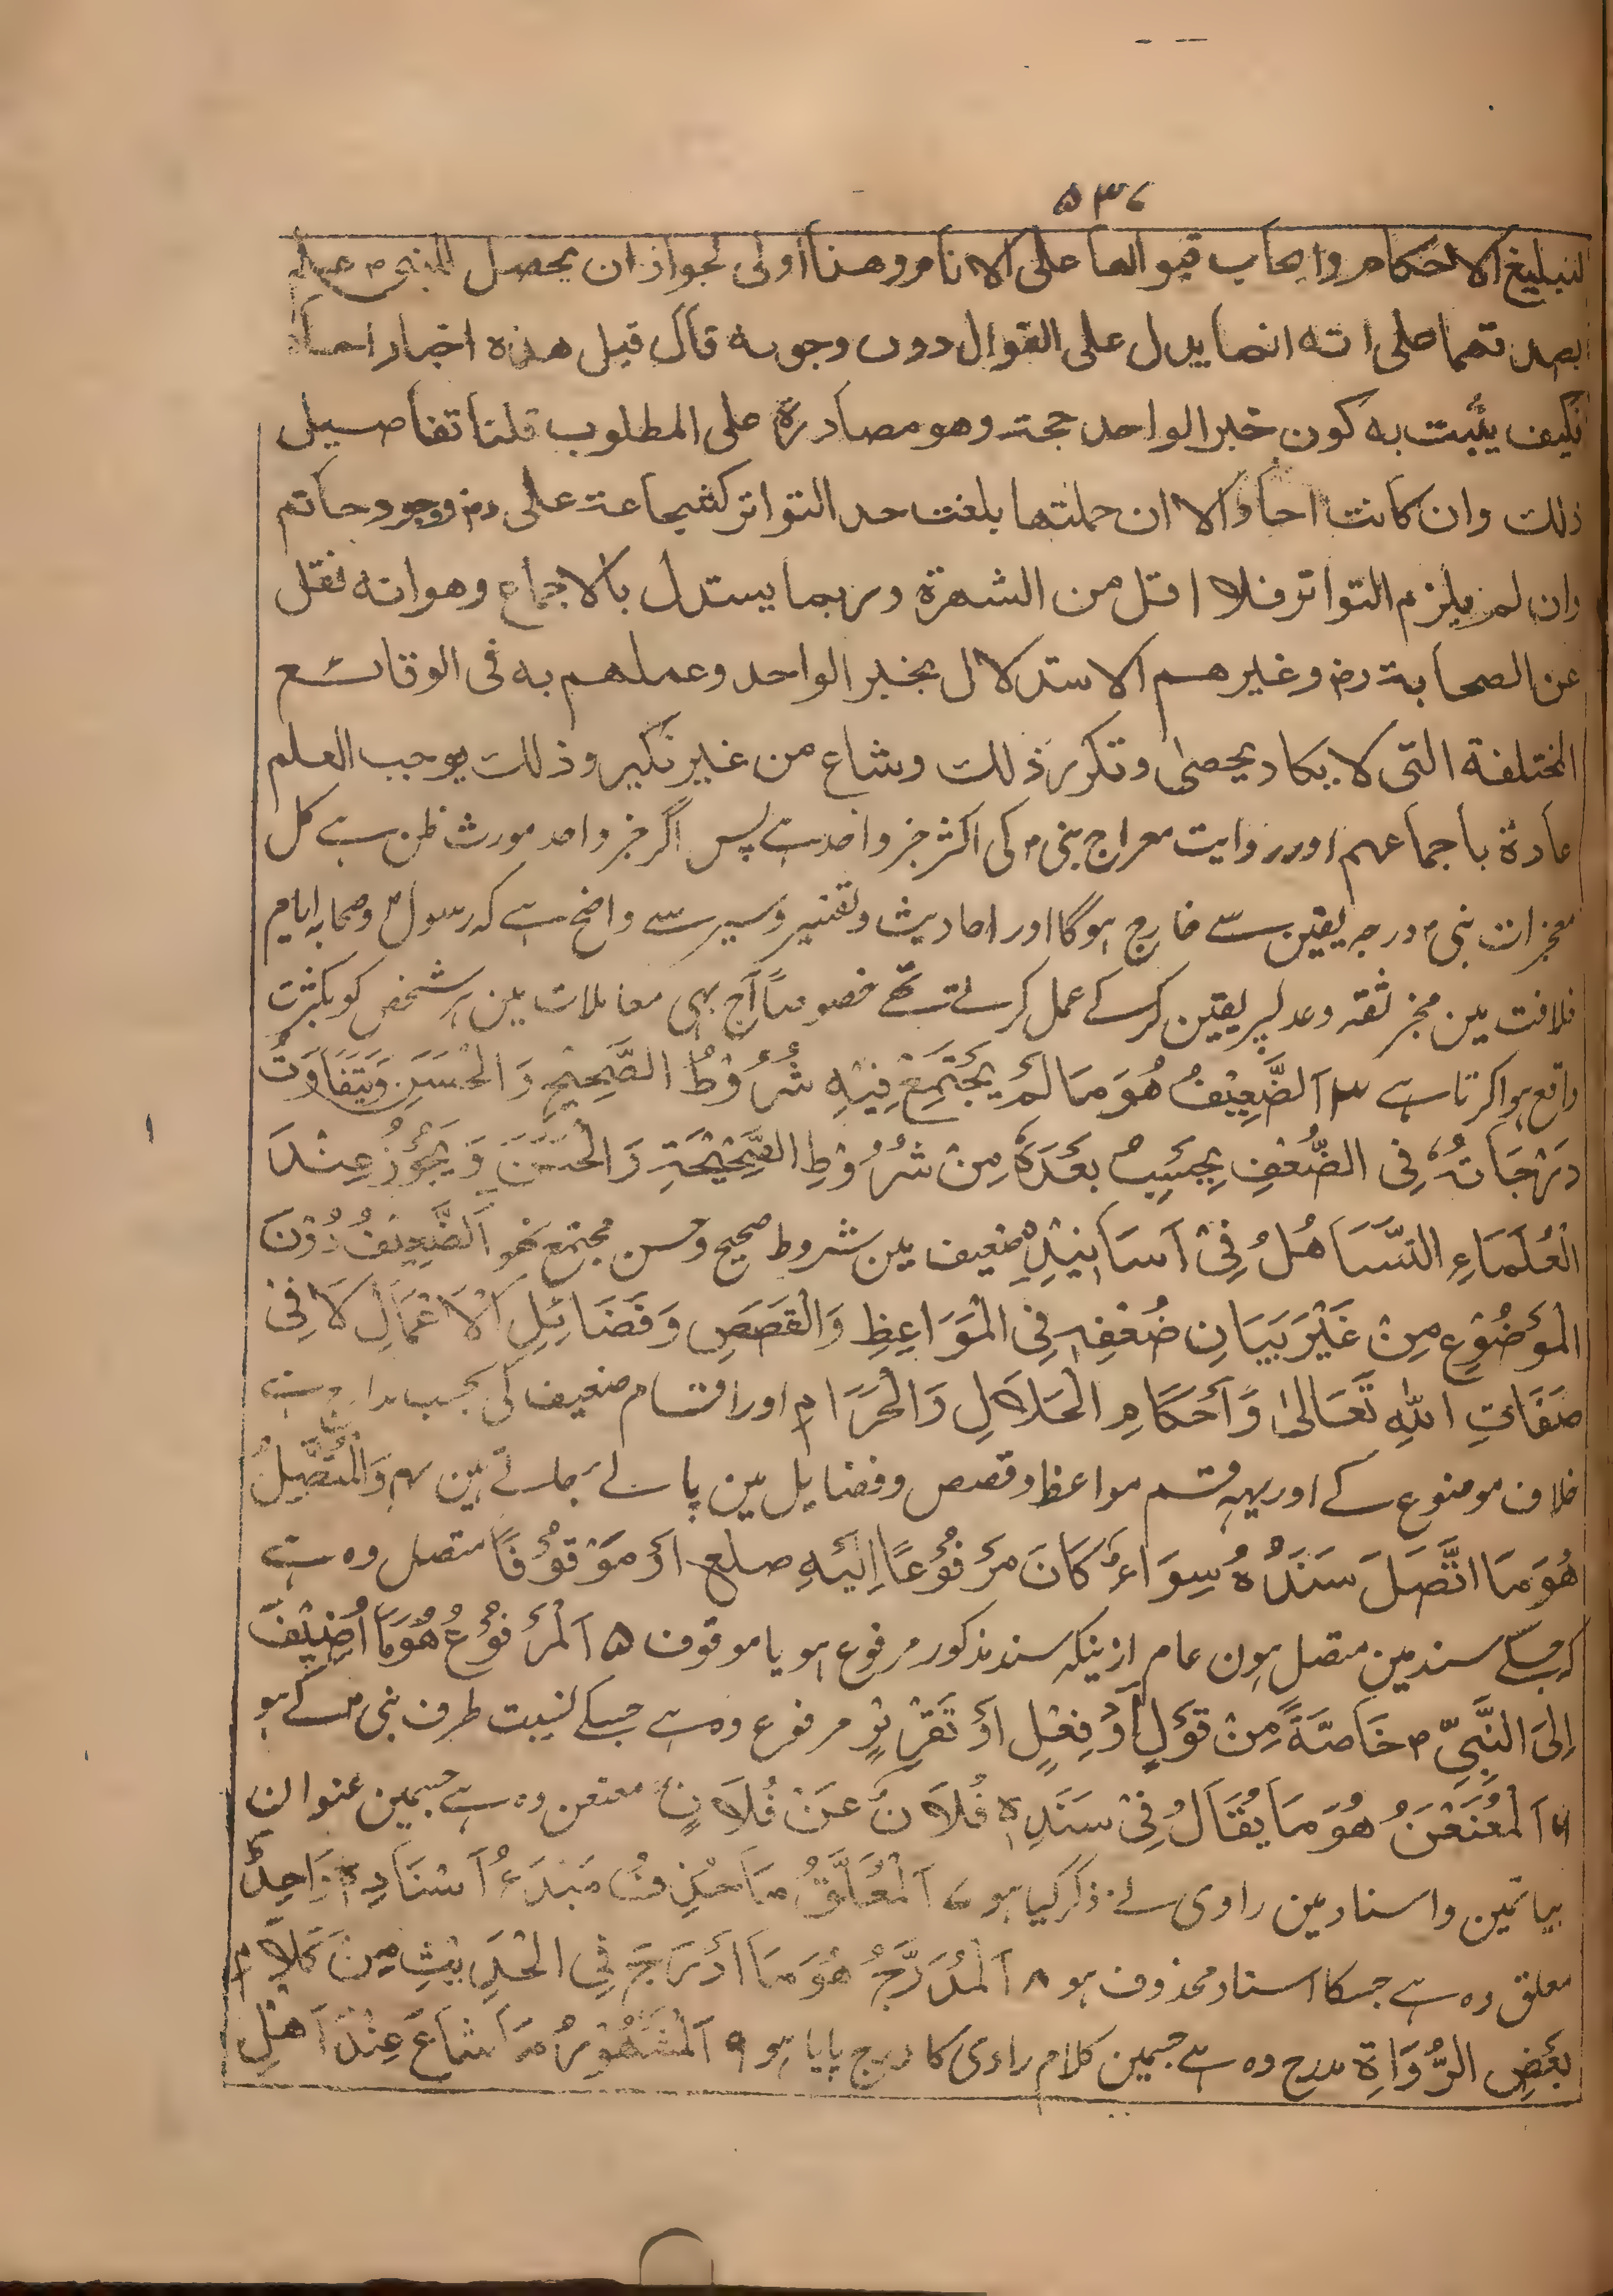 ۵۳۷
لتبلیغ الاحکام وایجاب قبولها علی الانام وهذا اولی لجواز ان یحصل للنبی م علم
بصدقهما علی انه انما یدل علی القبول دون وجوبه قال قیل هذه اخبار احاد
فکیف یثبت به کون خبر الواحد حجة وهو مصادرة علی المطلوب قلنا تفاصیل
ذلک وان کانت احادا الا ان جملتها بلغت حد التواتر کشجاعة علی رض وجود حاتم
وان لم یلزم التواتر فلا اقل من الشهرة وربما یستدل بالاجماع وهو انه نقل
عن الصحابة رض وغیرهم الاستدلال بخبر الواحد وعملهم به فی الوقائع
المختلفة التی لا یکاد یحصی وتکرر ذلک وشاع من غیر نکیر وذلک یوجب العلم
عادة باجماعهم اور روایت معراج نبی م کی اکثر خبر واحد ہے پس اگر خبر واحد مورث ظن ہے کل
معجزات نبی م درجہ یقین سے خارج ہوگا اور احادیث وتفسیر وسیر سے واضح ہے کہ رسول م وصحابہ ایام
خلافت مین مخبر ثقہ وعدل پر یقین کرکے عمل کرتے تھے خصوصاً آج بہی معاملات مین ہر شخص کو بکثرت
واقع ہوا کرتا ہے ۳ اَلضَّعِیْفُ هُوَ مَا لَمْ یَجْتَمِعْ فِیْهِ شُرُوْطُ الصَّحِیْحِ وَالْحَسَنِ وَیَتَفَاوَتُ
دَرَجَاتُهٗ فِی الضُّعْفِ بِحَسَبِ بُعْدِهٖ مِنْ شُرُوْطِ الصَّحِیْحَةِ وَالْحَسَنِ وَیَجُوْزُ عِنْدَ
الْعُلَمَاءِ التَّسَاهُلُ فِیْ اَسَانِیْدِ ضعیف مین شروط صحیح وحسن مجتمع نحو اَلضَّعِیْفُ دُوْنَ
الْمَوْضُوْعِ مِنْ غَیْرِ بَیَانِ ضُعْفِهٖ فِی الْمَوَاعِظِ وَالْقَصَصِ وَفَضَائِلِ الْاَعْمَالِ لَا فِیْ
صِفَاتِ اللهِ تَعَالٰی وَاَحْکَامِ الْحَلَالِ وَالْحَرَامِ اور اقسام ضعیف کی بحسب مدارج ہے
خلاف موضوع کے اور یہہ قسم مواعظ وقصص وفضایل مین پائے جاتے ہین ۴ وَالْمُتَّصِلُ
هُوَ مَا اتَّصَلَ سَنَدُهٗ سِوَاءٌ کَانَ مَرْفُوْعًا اِلَیْهِ صلعم اَوْ مَوْقُوْفًا متصل وہ ہے
کہ جسکے سند مین متصل ہون عام ازینکہ سند مذکور مرفوع ہو یا موقوف ۵ اَلْمَرْفُوْعُ هُوَ مَا اُضِیْفَ
اِلَی النَّبِیِّ م خَاصَّةً مِنْ قَوْلٍ اَوْ فِعْلٍ اَوْ تَقْرِیْرٍ مرفوع وہ ہے جسکے نسبت طرف نبی م کے ہو
۶ اَلْمُعَنْعَنُ هُوَ مَا یُقَالُ فِیْ سَنَدِهٖ فُلَانٌ عَنْ فُلَانٍ معنعن وہ ہے جسمین عنوان
بیاتمین واسناد مین راوی نے ذکر کیا ہو ۷ اَلْمُعَلَّقُ مَا حُذِفَ مَبْدَءُ اَسْنَادِهٖ وَاحِدٌ
معلق وہ ہے جسکا اسناد محذوف ہو ۸ اَلْمُدَرَّجُ هُوَ مَا اُدْرِجَ فِی الْحَدِیْثِ مِنْ کَلَامِ
بَعْضِ الرُّوَاةِ مدرج وہ ہے جسمین کلام راوی کا درج پایا ہو ۹ اَلْمَشْهُوْرُ مَا شَاعَ عِنْدَ اَهْلِ